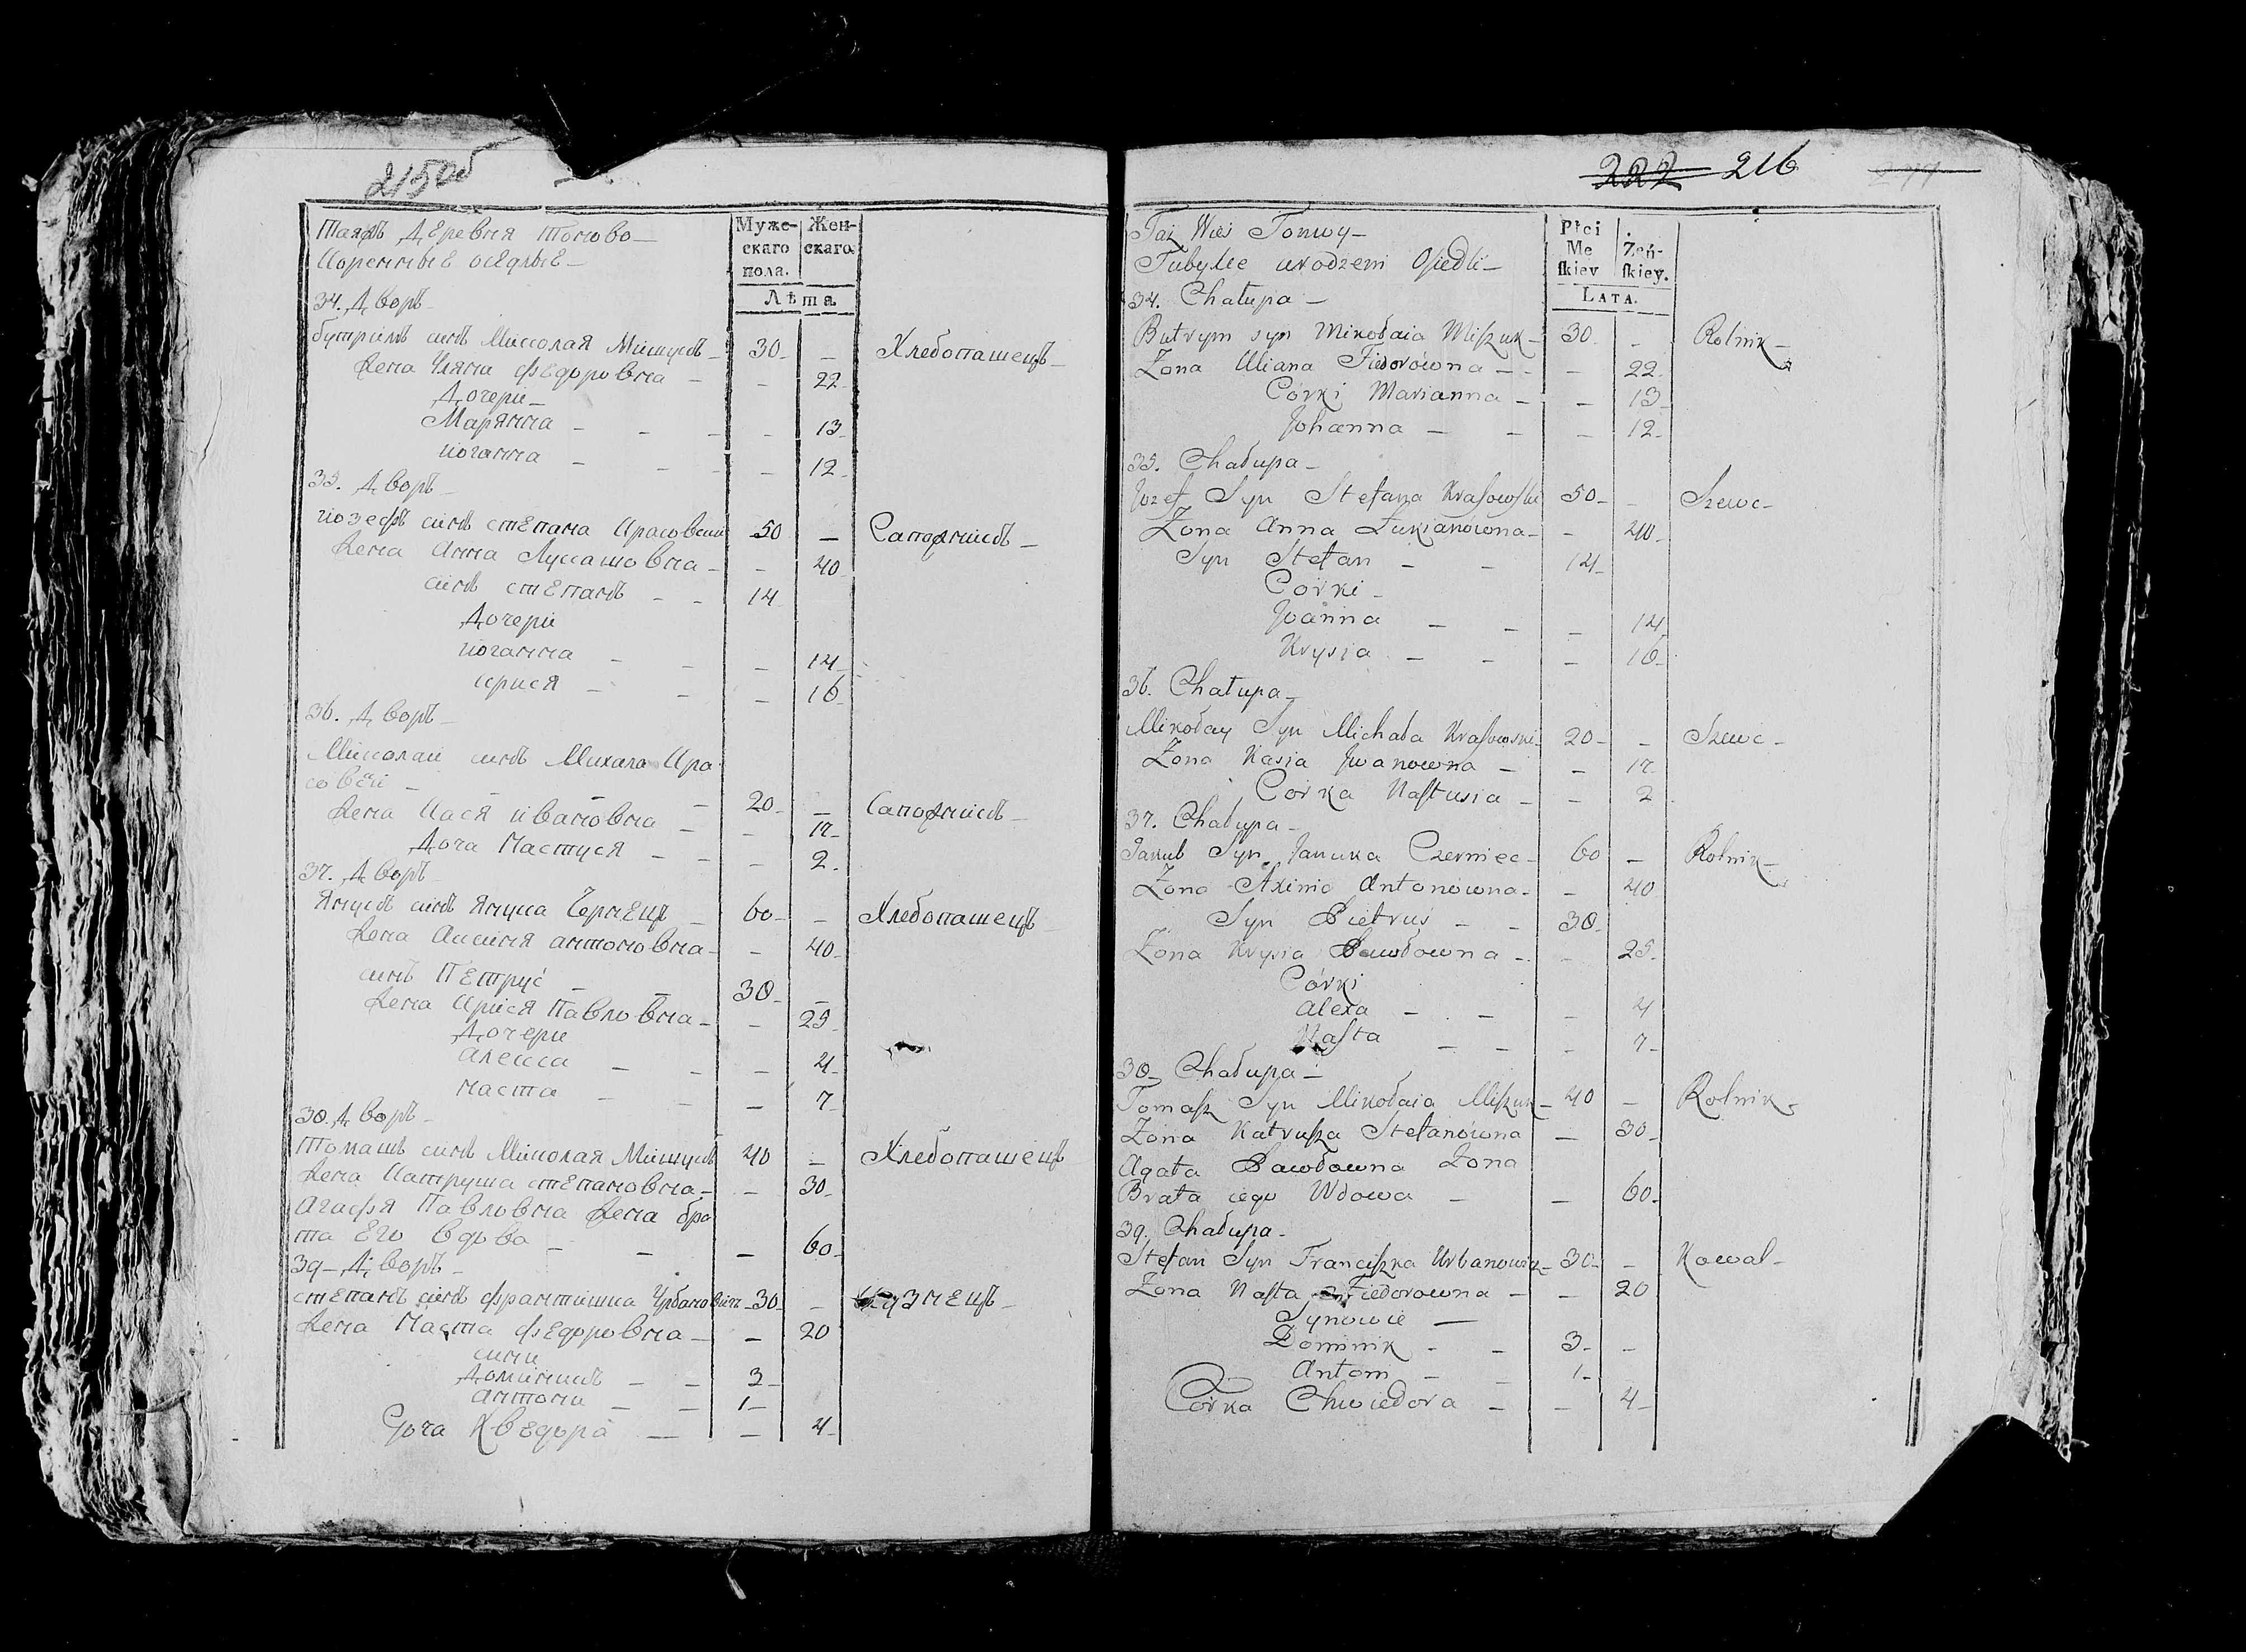 215об
Таяжъ Деревня Тоново
Коренные оседлые
Мужескаго пола. Женскаго.
Лѣта.
34. Дворъ
Бутримъ синъ Миколая Мишукъ 30 — Хлебопашецъ
Жена Уляна Федоровна — 22
Дочери
Марянна — 13
Иоганна — 12
35. Дворъ
Иозефъ синъ Степана Красовски 50 — Сапожникъ
Жена Анна Лукашовна — 40
синъ Степанъ 14
Дочери
Иоганна — 14
Крися — 18
36. Дворъ
Миколаи синъ Михала Кра
совски 20 — Сапожникъ
Жена Кася Ивановна — 17
Доча Настуся — 2
37. Дворъ
Якубъ синъ Янука Чернецъ 60 — Хлебопашецъ
Жена Аксиня Антоновна — 40
синъ Петрусь 38 —
Жена Крися Павловна — 25
Дочери
Алекса — 4
Наста — 7
38. Дворъ
Томашъ синъ Миколая Мишукъ 40 — Хлебопашецъ
Жена Катруша Степановна — 30
Агафя Павловна Жена бра
та Его вдова — 60
39. Дворъ
Степанъ синъ Франтишка Урбановичъ 30 — Кузнецъ
Жена Наста Федоровна — 20
сини
Доминикъ 3
Антони 1
Доча Хведора — 4
222 216
Taż Wieś Tonwy
Tubylce urodzeni Osiedli
Płci Męſkiey Żeńſkiey.
LATA.
34. Chałupa
Butrym syn Mikołaia Miſzuk 30 — Rolnik
Żona Uliana Fiedorówna — 22
Córki Marianna — 13
Johanna — 12
35. Chałupa
Jozef Syn Stefana Kraſowſki 50 — Szewc
Żona Anna Łukianówna — 40
Syn Stefan 14
Córki
Joanna — 14
Krysia — 18
36. Chałupa
Mikołay Syn Michała Kraſowski 20 — Szewc
Żona Kasia Jwanowna — 17
Corka Naſtusia — 2
37. Chałupa
Jakub Syn Januka Czerniec 60 — Rolnik
Żona Axinia Antonówna — 40
Syn Pietruś 38
Żona Krysia Pawłowna — 25
Córki
Alexa — 4
Naſta — 7
38. Chałupa
Tomaſz Syn Mikołaia Miſzuk 40 — Rolnik
Żona Katruſza Stefanówna — 30
Agata Pawłowna Żona
Brata iego Wdowa — 60
39. Chałupa
Stefan Syn Franciſzka Urbanowicz 30 — Kowal
Żona Naſta Fiedorowna — 20
Synowie
Dominik 3 —
Antoni 1
Córka Chwiedora — 4